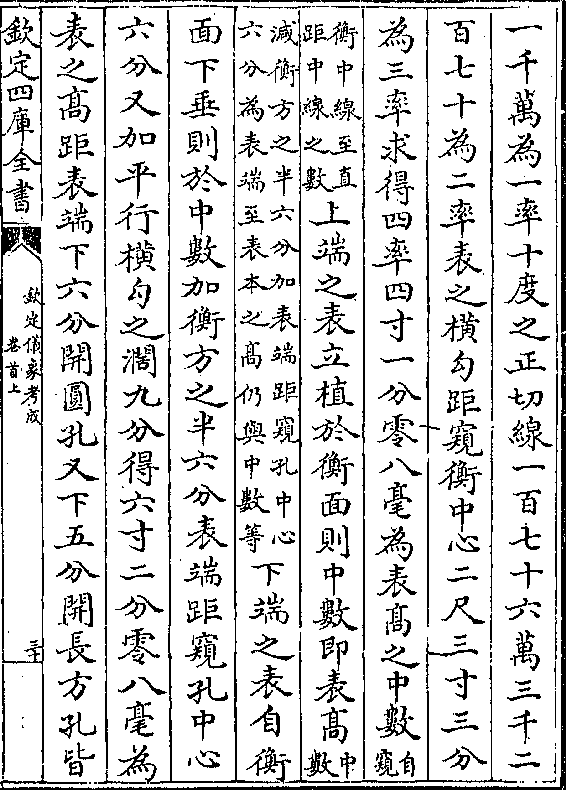 一千萬為一率十度之正切線一百七十六萬三千二
百七十為二率表之橫勾距窺衡中心二尺三寸三分
為三率求得四率四寸一分零八毫為表高之中數自窺
衡中線至直距中線之數上端之表立植於衡面則中數即表高中數
減衡方之半六分加表端距窺孔中心六分為表端至表本之高仍與中數等下端之表自衡
面下垂則於中數加衡方之半六分表端距窺孔中心
六分又加平行橫勾之濶九分得六寸二分零八毫為
表之高距表端下六分開圓孔又下五分開長方孔皆
欽定四庫全書
欽定儀象考成
卷首上
三十